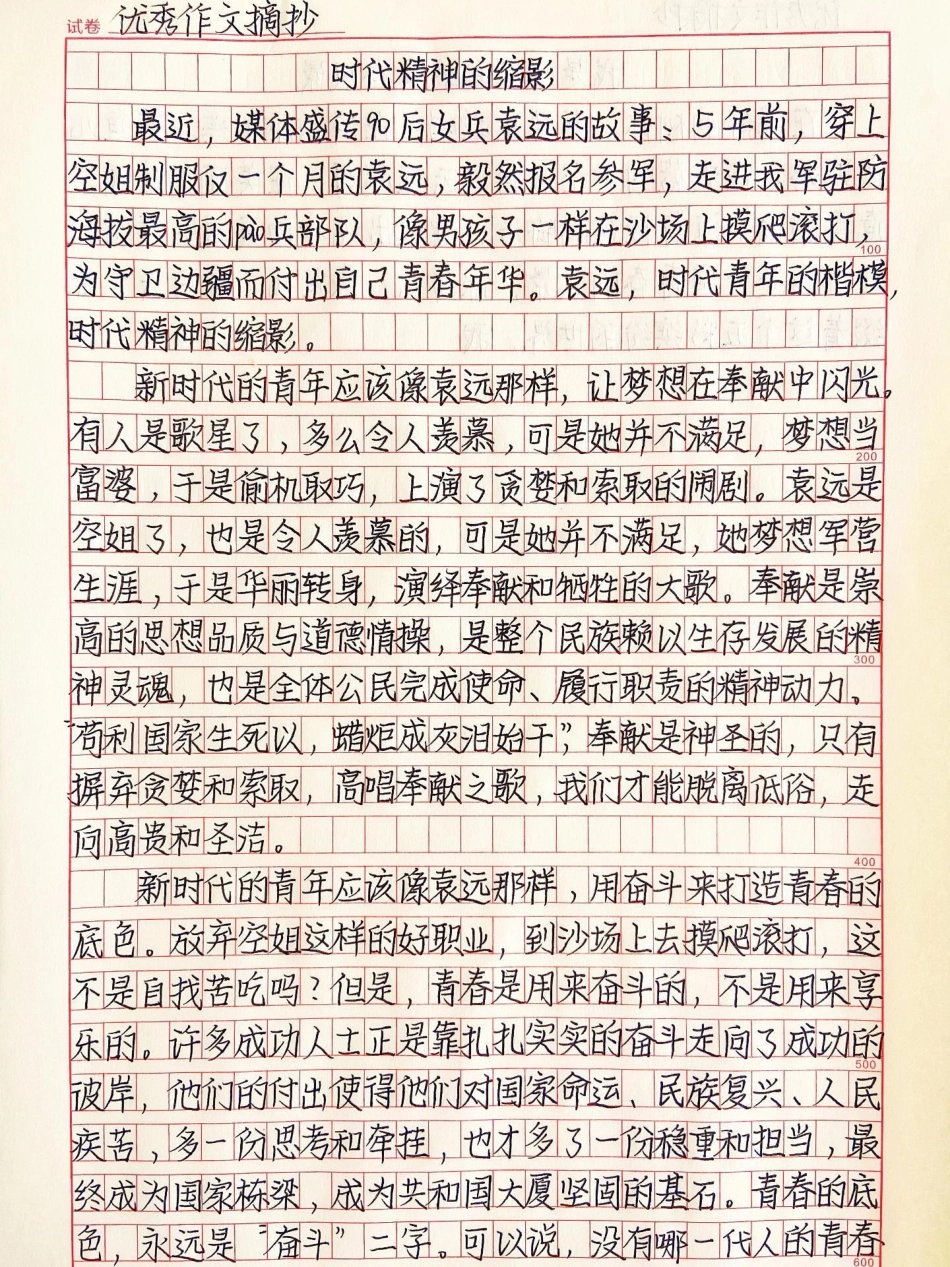 试卷 优秀作文摘抄
时代精神的缩影
最近，媒体盛传90后女兵袁远的故事：5年前，穿上
空姐制服仅一个月的袁远，毅然报名参军，走进我军驻防
海拔最高的pao兵部队，像男孩子一样在沙场上摸爬滚打，
100
为守卫边疆而付出自己青春年华。袁远，时代青年的楷模，
时代精神的缩影。
新时代的青年应该像袁远那样，让梦想在奉献中闪光。
有人是歌星了，多么令人羡慕，可是她并不满足，梦想当
200
富婆，于是偷机取巧，上演了贪婪和索取的闹剧。袁远是
空姐了，也是令人羡慕的，可是她并不满足，她梦想军营
生涯，于是华丽转身，演绎奉献和牺牲的大歌。奉献是崇
高的思想品质与道德情操，是整个民族赖以生存发展的精
300
神灵魂，也是全体公民完成使命、履行职责的精神动力。
“苟利国家生死以，蜡炬成灰泪始干”，奉献是神圣的，只有
摒弃贪婪和索取，高唱奉献之歌，我们才能脱离低俗，走
向高贵和圣洁。
400
新时代的青年应该像袁远那样，用奋斗来打造青春的
底色。放弃空姐这样的好职业，到沙场上去摸爬滚打，这
不是自找苦吃吗？但是，青春是用来奋斗的，不是用来享
乐的。许多成功人士正是靠扎扎实实的奋斗走向了成功的
500
彼岸，他们的付出使得他们对国家命运、民族复兴、人民
疾苦，多一份思考和牵挂，也才多了一份稳重和担当，最
终成为国家栋梁，成为共和国大厦坚固的基石。青春的底
色，永远是“奋斗”二字。可以说，没有哪一代人的青春
600